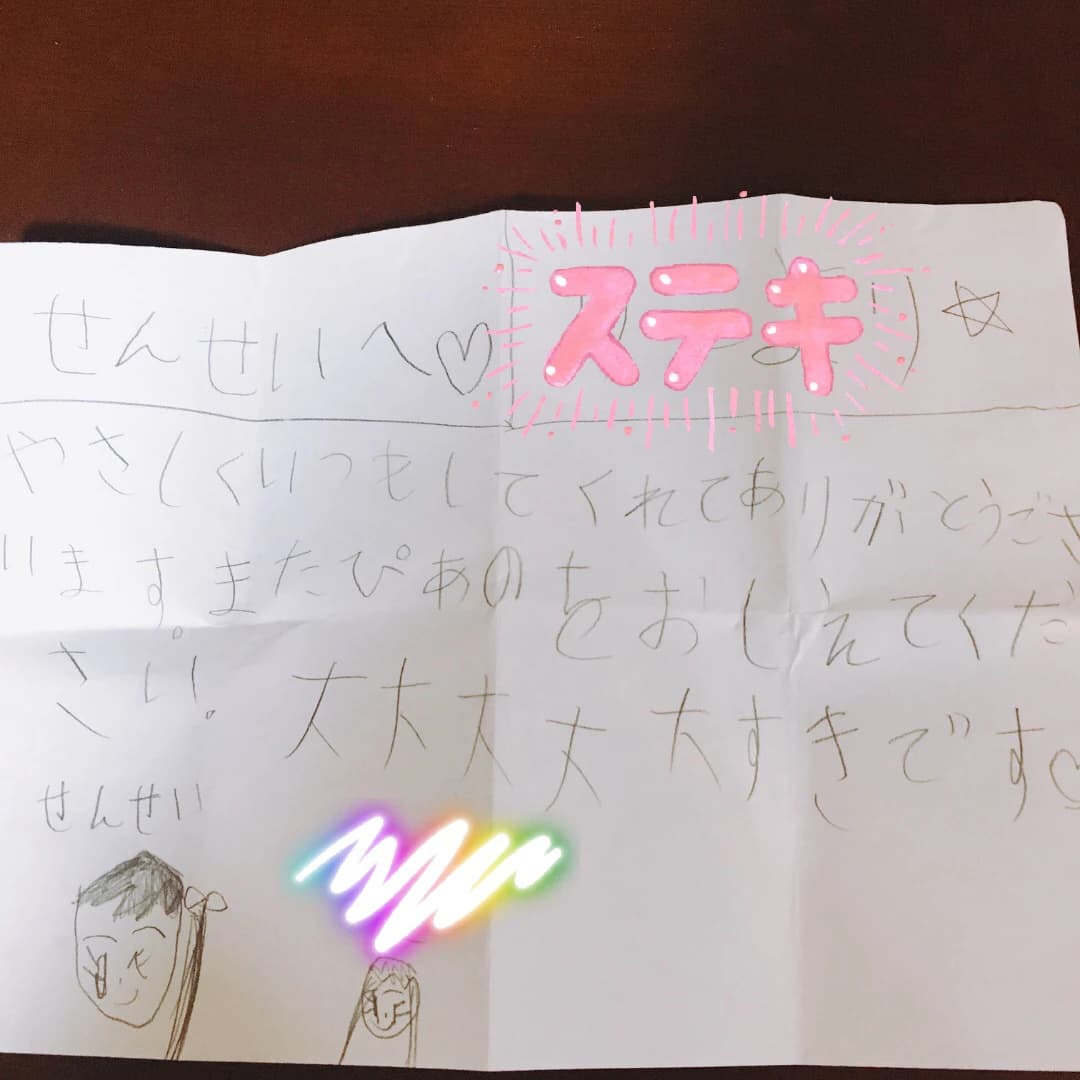 せんせいへ♡ ステキ ☆
やさしくいつもしてくれてありがとうござ
いますまたぴあのをおしえてくだ
さい。大大大大大すきです♡
せんせい